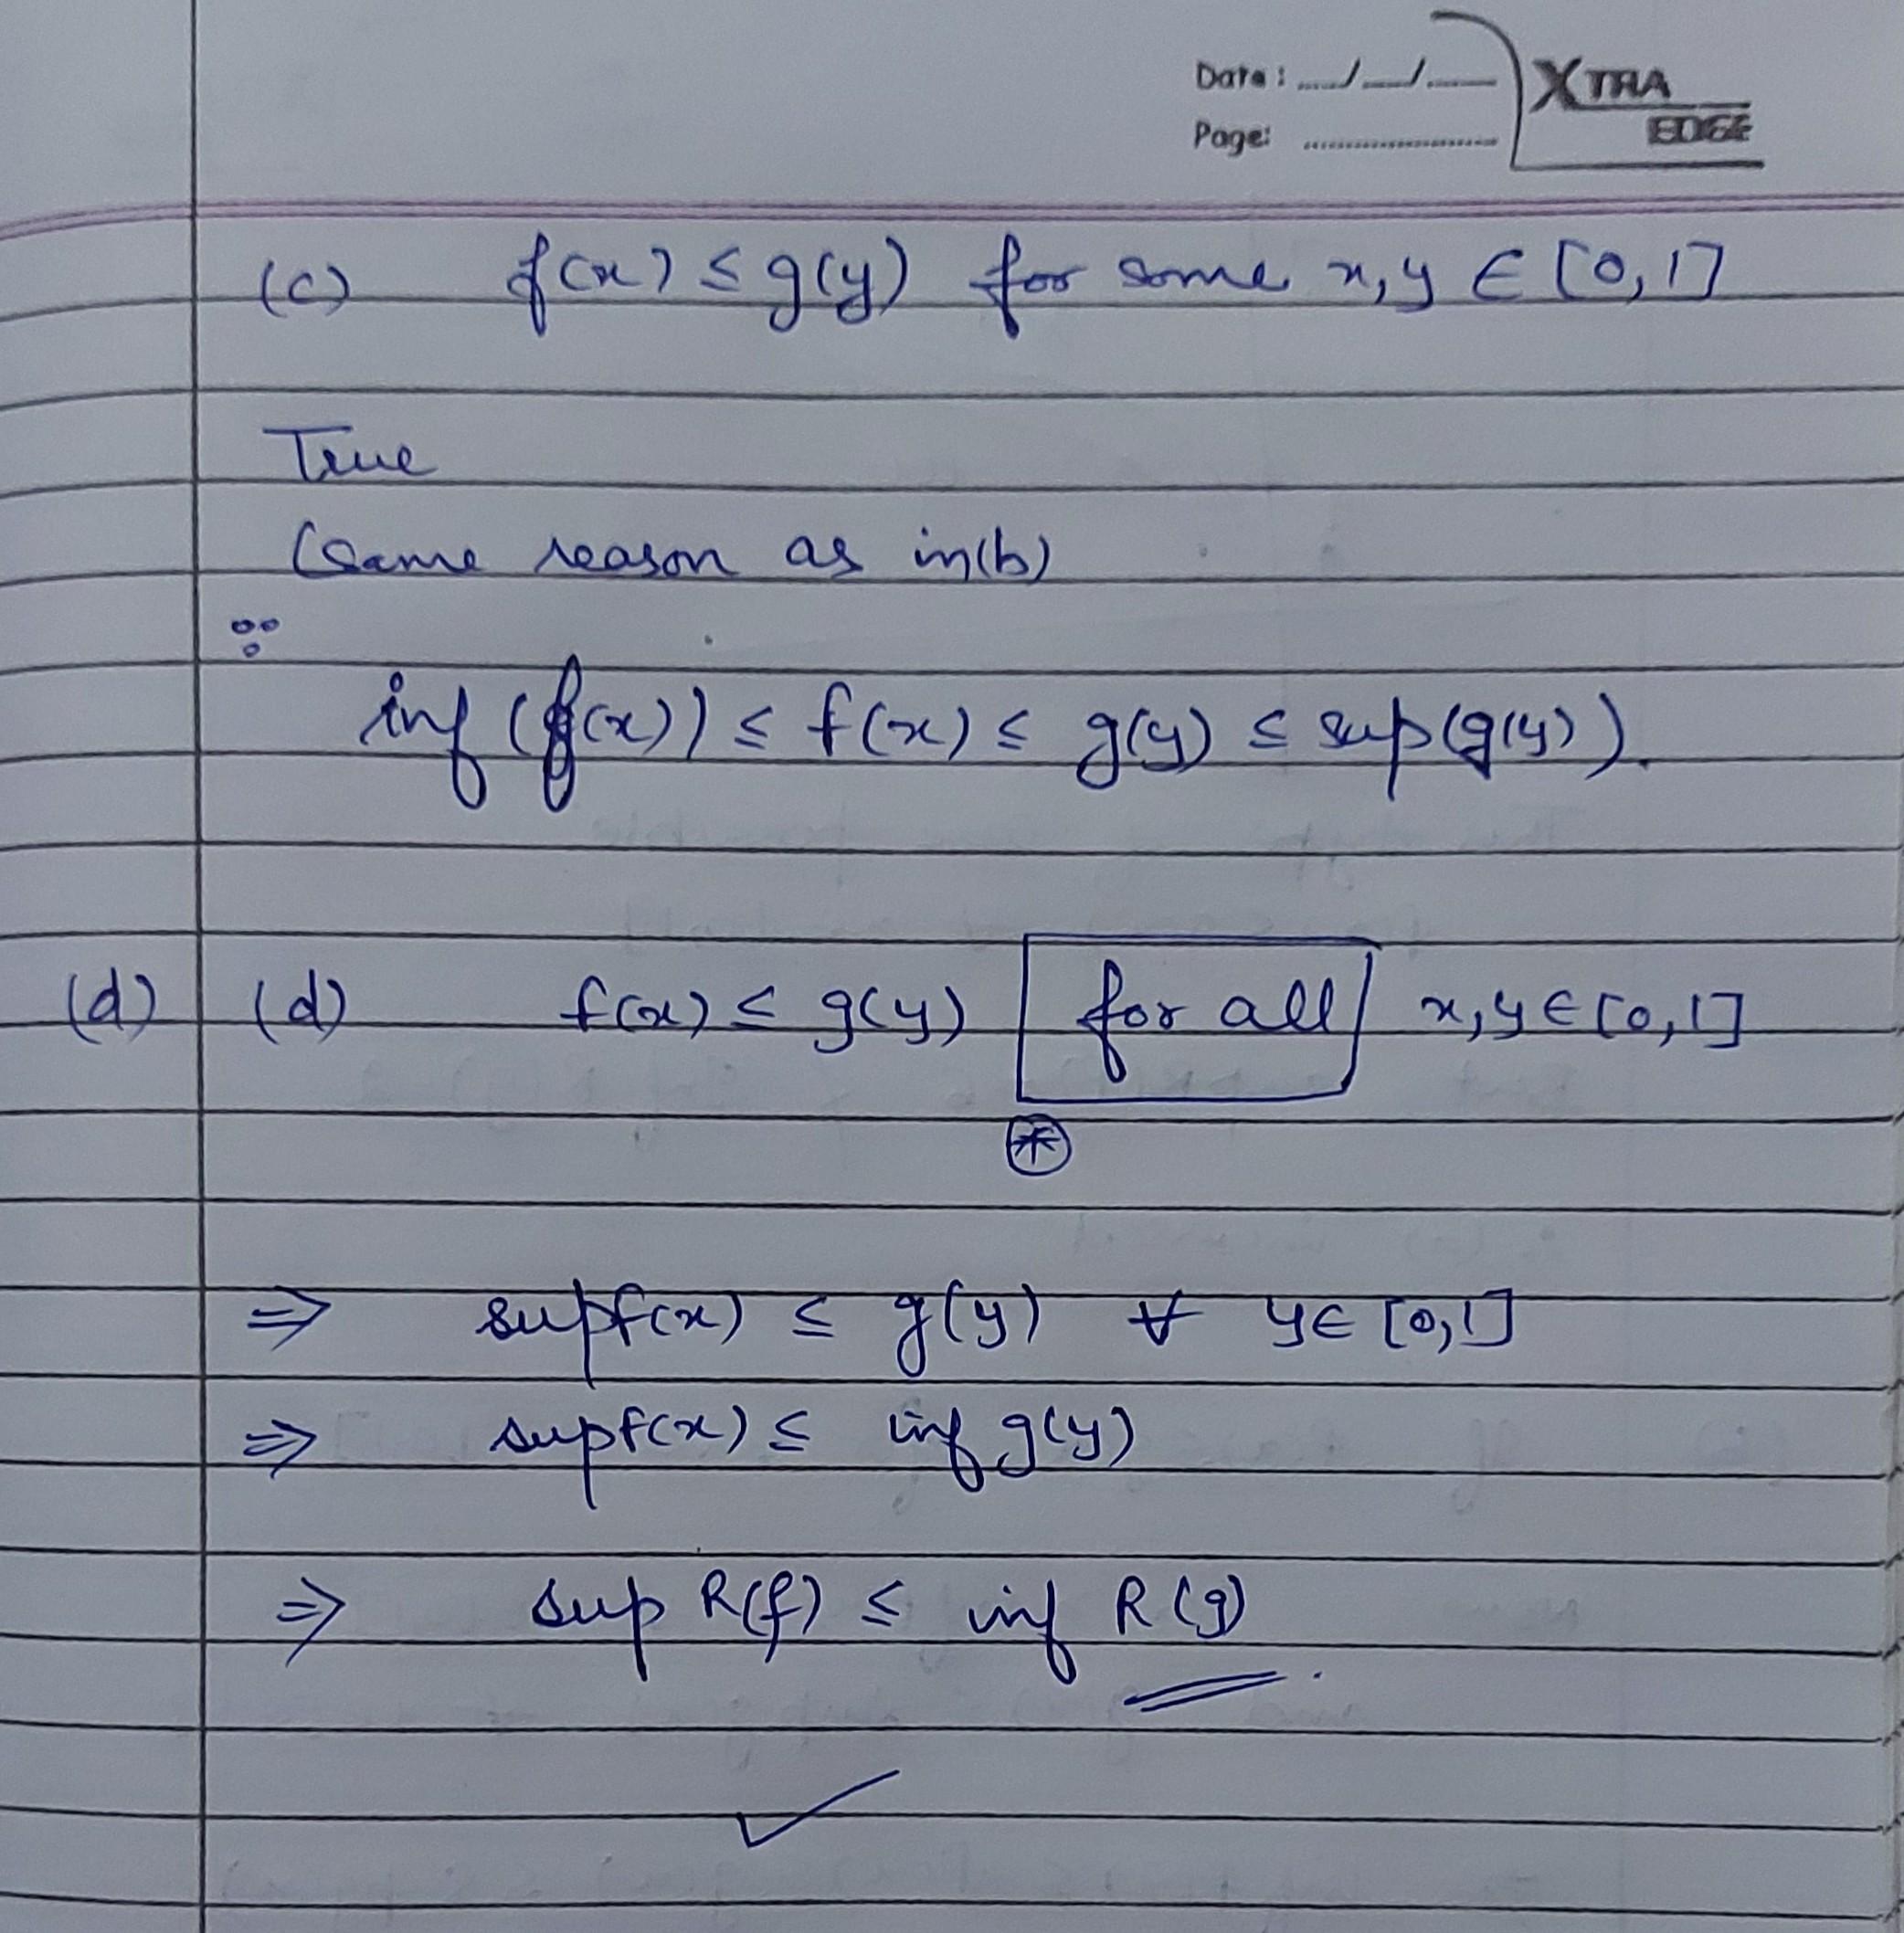 Date : ..../..../....
Page: ....................
XTRA
EDGE
(c) f(x) ≤ g(y) for some x, y ∈ [0, 1]
True
(Same reason as in(b)
∵
inf (f(x)) ≤ f(x) ≤ g(y) ≤ sup(g(y)).
(d) (d) f(x) ≤ g(y) for all x, y ∈ [0, 1]
*
⇒ supf(x) ≤ g(y) ∀ y ∈ [0, 1]
⇒ supf(x) ≤ inf g(y)
⇒ sup R(f) ≤ inf R(g)